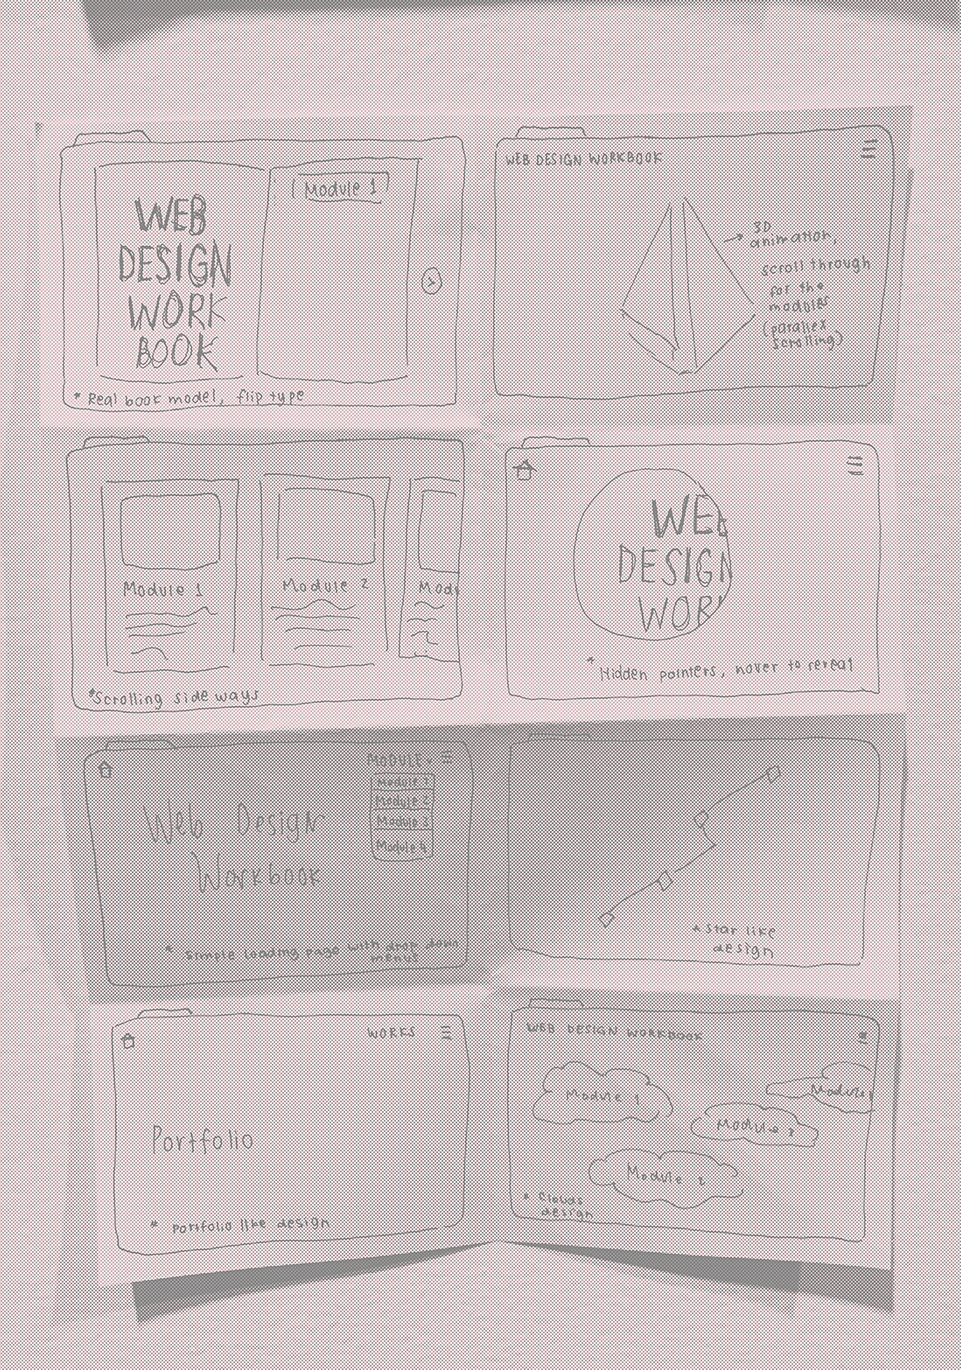 WEB
DESIGN
WORK
BOOK
Module 1
* Real book model, flip type
WEB DESIGN WORKBOOK
3D
animation,
scroll through
for the
modules
(parallex
scrolling)
Module 1
Module 2
Modu
*Scrolling side ways
WEB
DESIGN
WOR
* Hidden pointers, hover to reveal
MODULE
Module 1
Module 2
Module 3
Module 4
Web Design
Workbook
* Simple loading page with drop down
menus
* Star like
design
WORKS
Portfolio
* portfolio like design
WEB DESIGN WORKBOOK
Module 1
Module
Module 3
Module 2
* Clouds
design